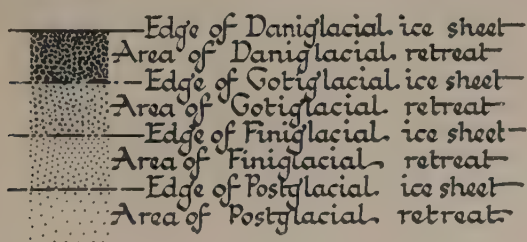 Edge of Daniglacial ice sheet
Area of Daniglacial retreat
Edge of Gotiglacial ice sheet
Area of Gotiglacial retreat
Edge of Finiglacial ice sheet
Area of Finiglacial retreat
Edge of Postglacial ice sheet
Area of Postglacial retreat